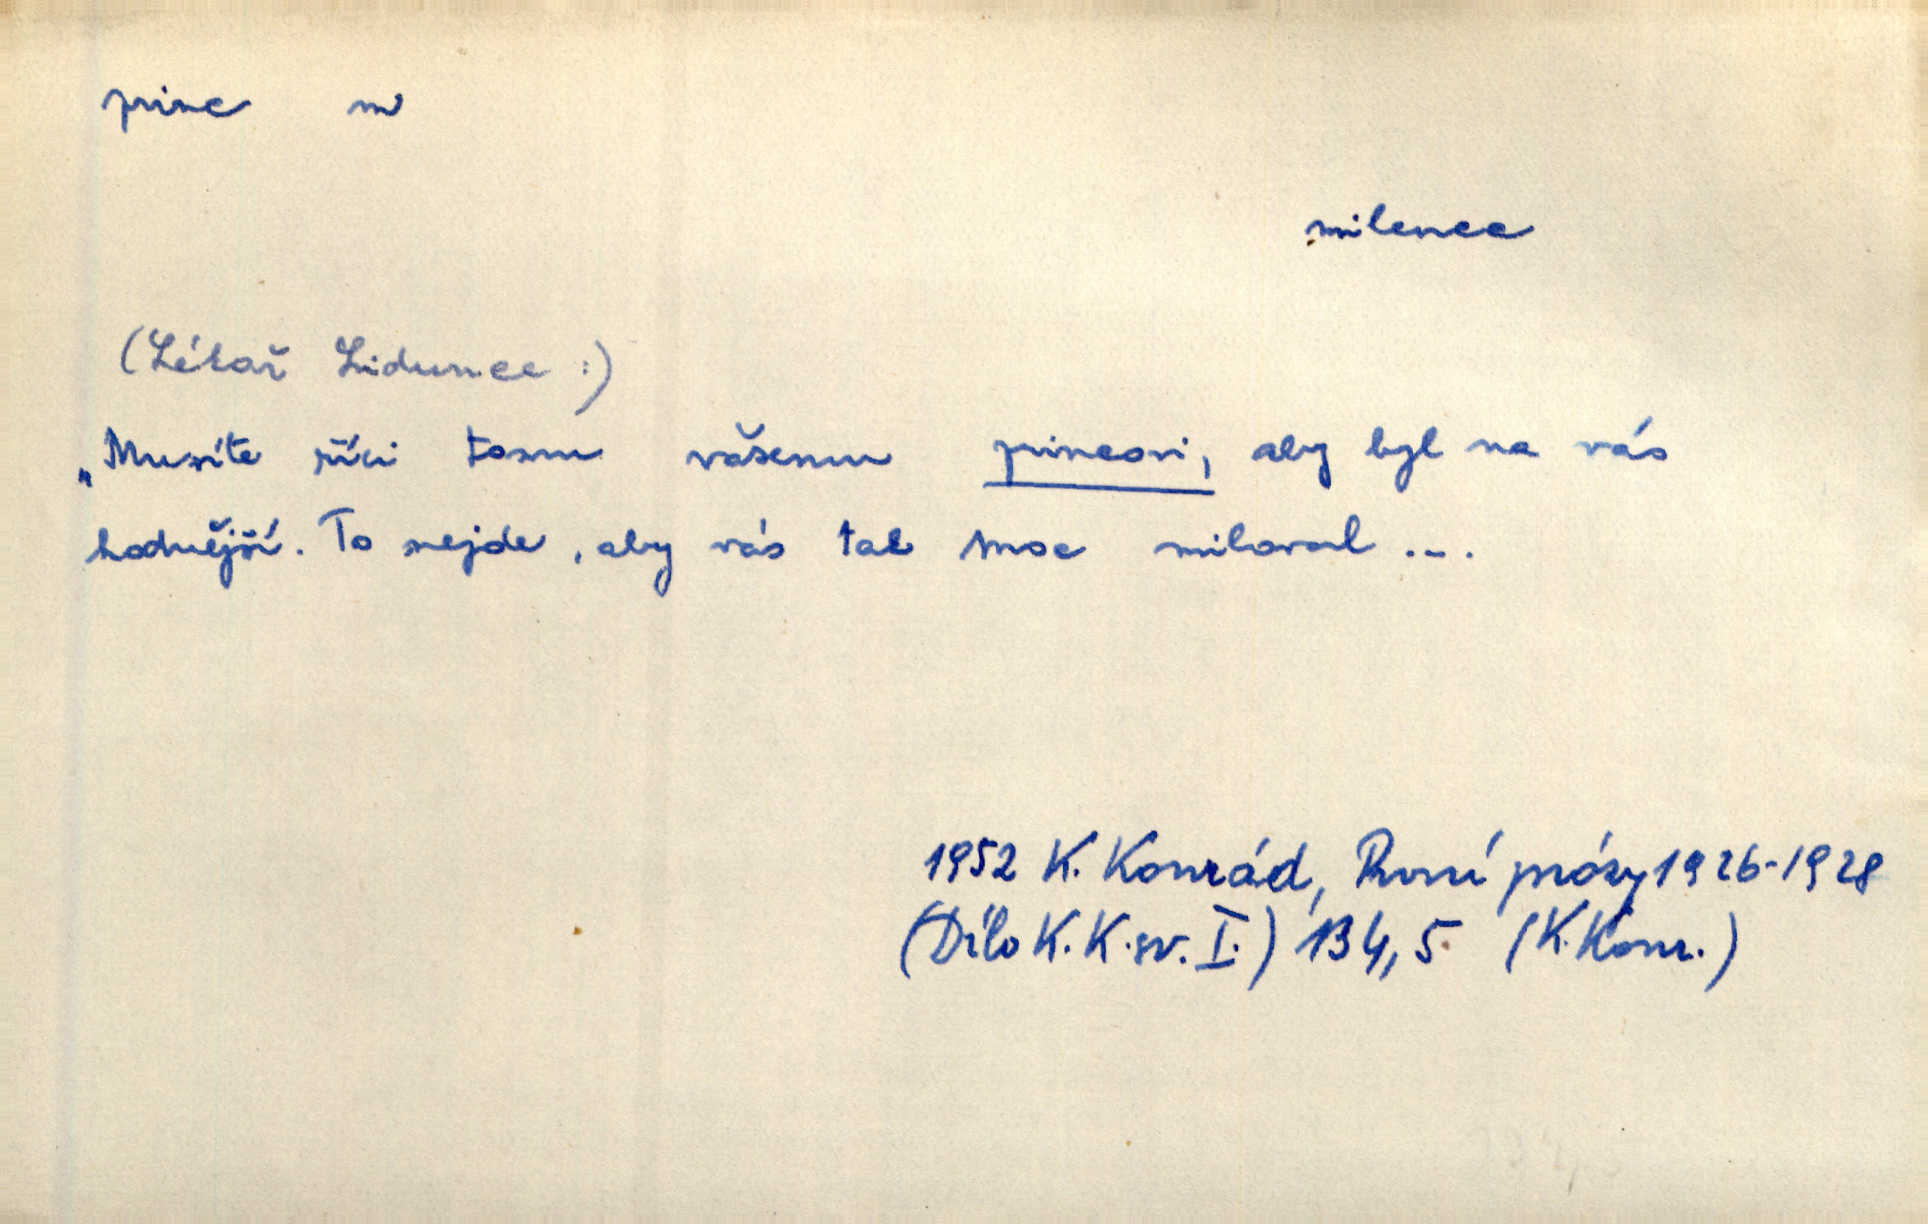 princ m
milenec
(Lékař Lidunce :)
„Musíte říci tomu vašemu princovi, aby byl na vás
hodnější. To nejde, aby vás tak moc miloval ...
1952 K. Konrád, První prózy 1926-1928
(Dílo K. K. sv. I.) 134, 5. (K. Konr.)